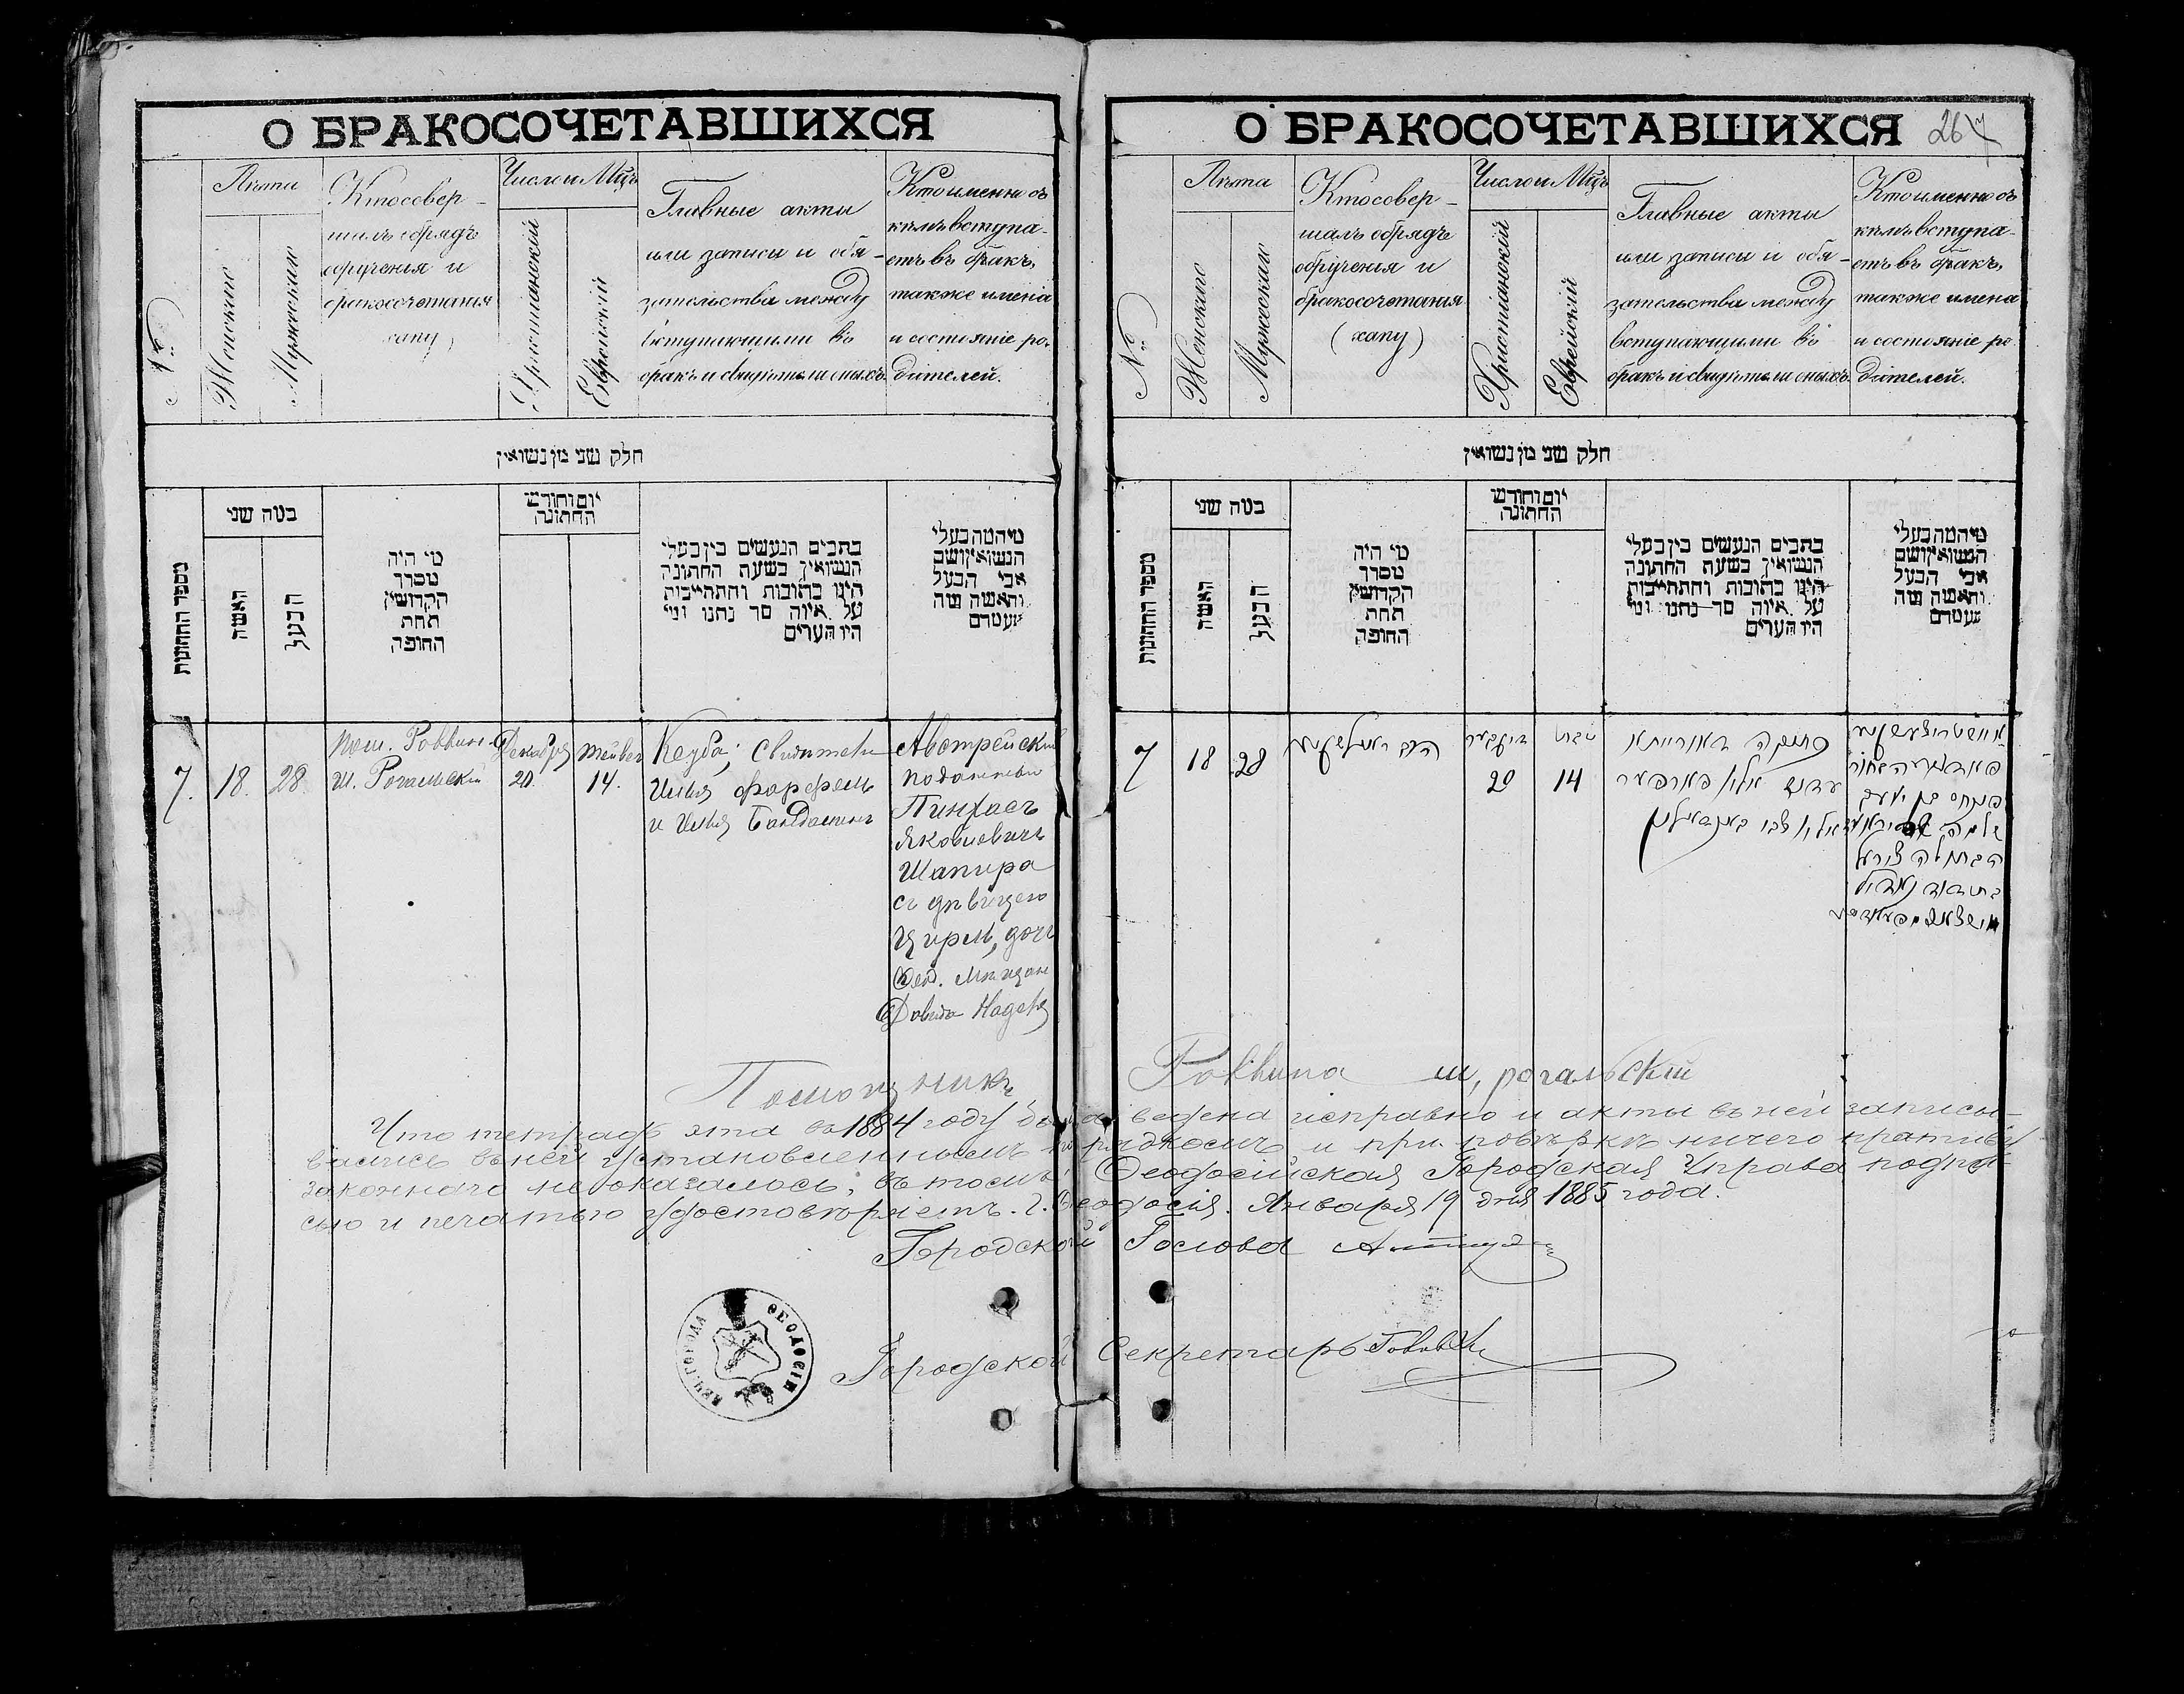 О БРАКОСОЧЕТАВШИХСЯ
№
Лѣта
Женскаго
Мужескаго
Кто совер-
шалъ обрядъ
обрученія и
бракосочетанія
(хапу)
Число и М-цъ
Христіанскій
Еврейскій
Главные акты
или записи и обя-
зательства между
вступающими въ
бракъ и свидѣтели оныхъ.
Кто именно съ
кѣмъ вступа-
етъ въ бракъ,
также имена
и состояніе ро-
дителей.
חלק שני מן נשואין
מספר החתונות
כמה שני
האשה
הבעל
מי היה
מסדר
הקדושין
תחת
החופה
יום וחודש
החתונה
כתבים הנעשים בין בעלי
הנשואין בשעת החתונה
היינו כתובות והתחייבות
על איזה סך נתנו ומי
היו הערים
מי המה בעלי
הנשואין ושם
אבי הבעל
והאשה ומה
מעמדם
7.
18.
28.
Пом. Раввин.
Ш. Рогальскій
Декабря
20.
Тейвеч
14.
Кеуба; Свидетели
Илья Фарфель
и Илья
Австрейскій
подданный
Пинхасъ
Яковлевичъ
Шапира
съ дѣвицею
Цирль, дочь
Ѳеод. мѣщан
Давида Надель
О БРАКОСОЧЕТАВШИХСЯ
267
№
Лѣта
Женскаго
Мужескаго
Кто совер-
шалъ обрядъ
обрученія и
бракосочетанія
(хапу)
Число и М-цъ
Христіанскій
Еврейскій
Главные акты
или записи и обя-
зательства между
вступающими въ
бракъ и свидѣтели оныхъ.
Кто именно съ
кѣмъ вступа-
етъ въ бракъ,
также имена
и состояніе ро-
дителей.
חלק שני מן נשואין
מספר החתונות
כמה שני
האשה
הבעל
מי היה
מסדר
הקדושין
תחת
החופה
יום וחודש
החתונה
כתבים הנעשים בין בעלי
הנשואין בשעת החתונה
היינו כתובות והתחייבות
על איזה סך נתנו ומי
היו הערים
מי המה בעלי
הנשואין ושם
אבי הבעל
והאשה ומה
מעמדם
7
18
28
הרב
דיקאבר
20
טבת
14
כתובה דאורייתא
אליו פארפער
פנחס בן יעקב
הבתולה צירעל
Помощникъ Раввина Ш, рогальскій
Что тетрадь эта въ 1884 году была ведена исправно и акты въ ней записы-
вались въ ней установленнымъ порядкомъ и при повѣркѣ ничего противу
законнаго не оказалось, въ томъ Ѳеодосійская Городская Управа подпи-
сью и печатью удостовѣряетъ. г. Ѳеодосія. Января 19 дня 1885 года.
Городской Голова
Городской Секретарь
ѲЕОДОСІИ